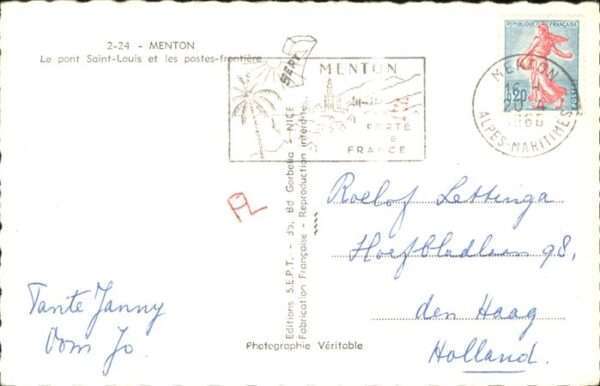 2-24 - MENTON
Le pont Saint-Louis et les postes-frontière
SEPT
MENTON
PERLE
FRANCE
REPUBLIQUE FRANÇAISE
MENTON
16
20-4
ALPES-MARITIMES
PL
Editions S.E.P.T. - 35, Bd Gorbella - NICE
Fabrication Française - Reproduction interdite
Roelof Lettinga
Hoefbladlaan 98,
den Haag
Holland.
Tante Janny
Oom Jo.
Photographie Véritable